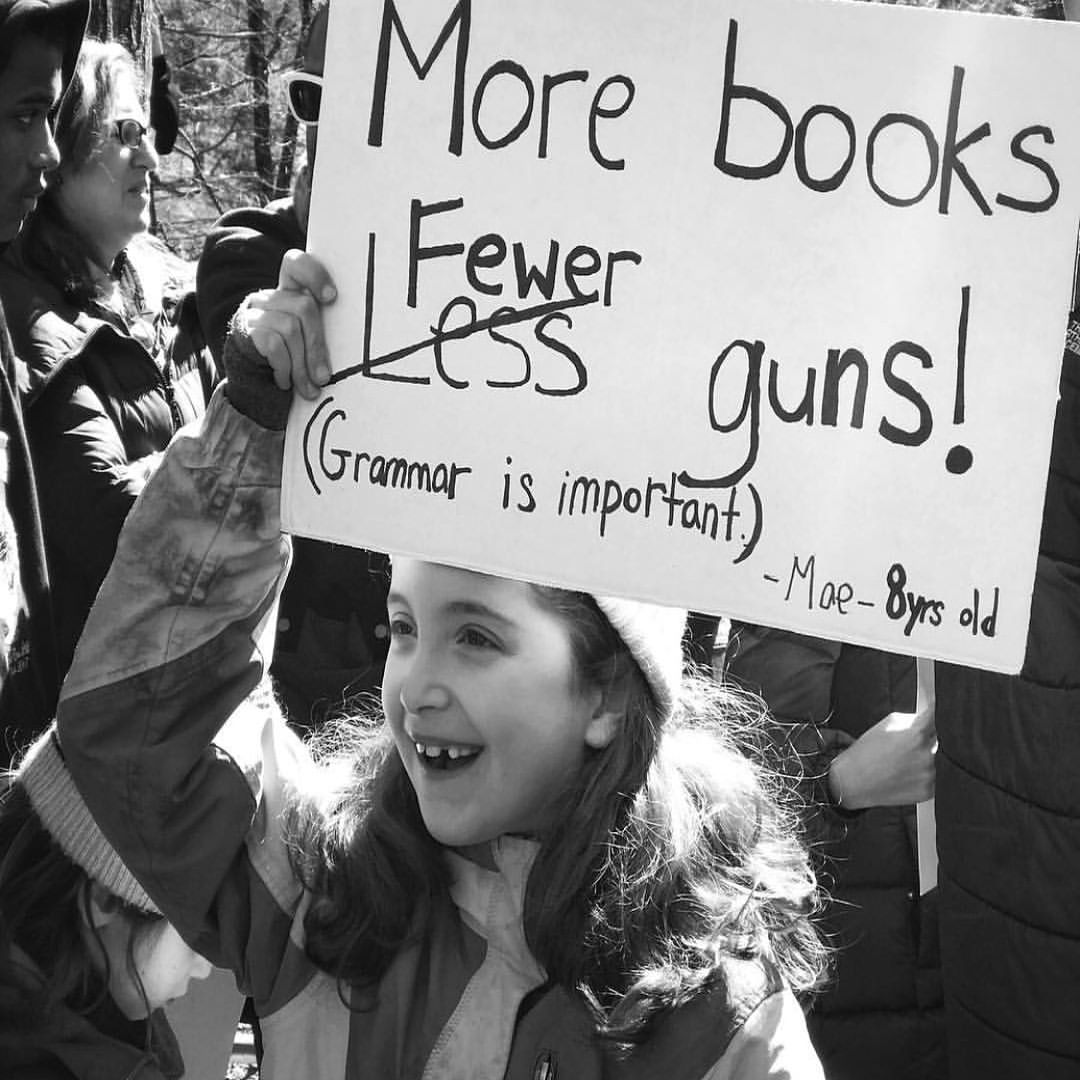 More books
Fewer
Less guns!
(Grammar is important.)
-Mae- 8yrs old